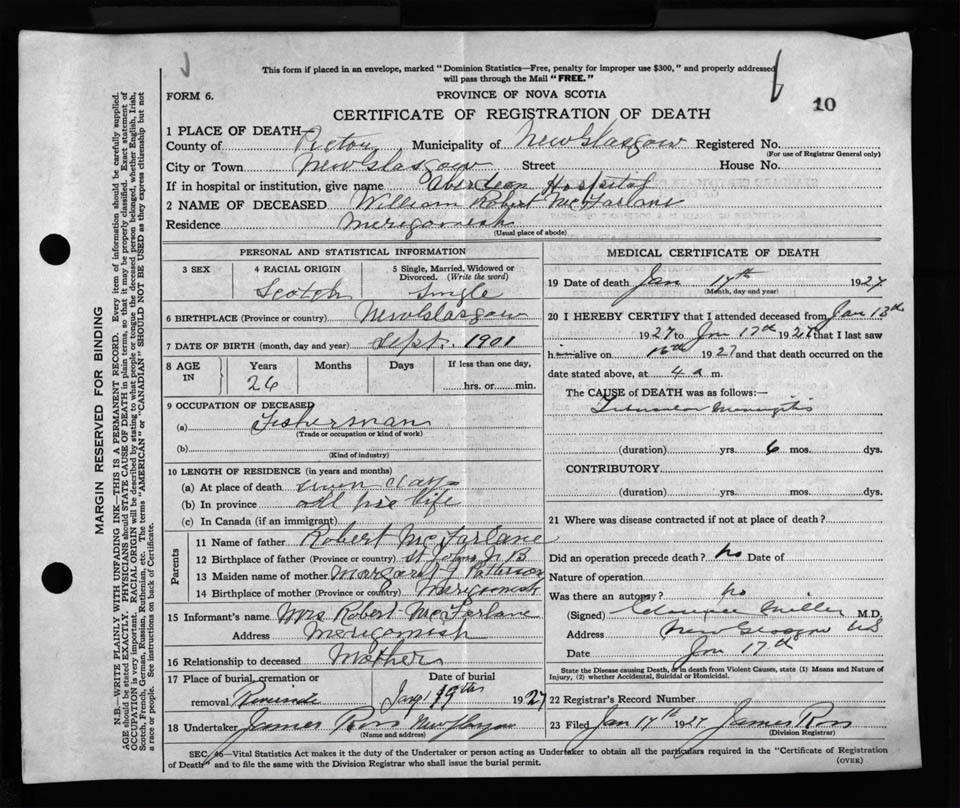 This form if placed in an envelope, marked "Dominion Statistics—Free, penalty for improper use $300," and properly addressed
will pass through the Mail "FREE."
FORM 6.
PROVINCE OF NOVA SCOTIA
10
CERTIFICATE OF REGISTRATION OF DEATH
1 PLACE OF DEATH—
County of Pictou Municipality of New Glasgow Registered No.
(For use of Registrar General only)
City or Town New Glasgow Street House No.
If in hospital or institution, give name Aberdeen Hospital
2 NAME OF DECEASED William Robert McFarlane
Residence Merigomish
(Usual place of abode)
PERSONAL AND STATISTICAL INFORMATION
3 SEX
4 RACIAL ORIGIN
Scotch
5 Single, Married, Widowed or
Divorced. (Write the word)
Single
6 BIRTHPLACE (Province or country) New Glasgow
7 DATE OF BIRTH (month, day and year) Sept. 1901
8 AGE
IN
Years
26
Months
Days
If less than one day,
hrs. or min.
9 OCCUPATION OF DECEASED
(a) Fisherman
(Trade or occupation or kind of work)
(b)
(Kind of industry)
10 LENGTH OF RESIDENCE (in years and months)
(a) At place of death seven days
(b) In province all his life
(c) In Canada (if an immigrant)
Parents
11 Name of father Robert McFarlane
12 Birthplace of father (Province or country) St Johns N B
13 Maiden name of mother Margaret J Patterson
14 Birthplace of mother (Province or country) Merigomish
15 Informant's name Mrs Robert McFarlane
Address Merigomish
16 Relationship to deceased Mother
17 Place of burial, cremation or
removal
Date of burial
Jany 19th 1927
18 Undertaker James Ross New Glasgow
(Name and address)
MEDICAL CERTIFICATE OF DEATH
19 Date of death Jan 17th 1927
(Month, day and year)
20 I HEREBY CERTIFY that I attended deceased from Jan 13th
1927 to Jan 17th 1927 that I last saw
him alive on 16th 1927 and that death occurred on the
date stated above, at 4 a m.
The CAUSE of DEATH was as follows:—
Tubercular Meningitis
(duration) yrs. 6 mos. dys.
CONTRIBUTORY
(duration) yrs. mos. dys.
21 Where was disease contracted if not at place of death?
Did an operation precede death? no Date of
Nature of operation
Was there an autopsy? no
(Signed) Clarence Miller M.D.
Address New Glasgow NS
Date Jan 17th
State the Disease causing Death, or in death from Violent Causes, state (1) Means and Nature of
Injury, (2) whether Accidental, Suicidal or Homicidal.
22 Registrar's Record Number
23 Filed Jan 17th 1927 James Ross
(Division Registrar)
SEC. 46—Vital Statistics Act makes it the duty of the Undertaker or person acting as Undertaker to obtain all the particulars required in the "Certificate of Registration
of Death" and to file the same with the Division Registrar who shall issue the burial permit.
(OVER)
MARGIN RESERVED FOR BINDING
N.B.—WRITE PLAINLY WITH UNFADING INK—THIS IS A PERMANENT RECORD. Every item of information should be carefully supplied.
AGE should be stated EXACTLY. PHYSICIANS should STATE CAUSE OF DEATH in plain terms, so that it may be properly classified. Exact statement of
OCCUPATION is very important. RACIAL ORIGIN will be described by stating to what people or tongue the deceased person belonged, whether English, Irish,
Scotch, French, German, Russian, Ruthenian, etc. The terms "AMERICAN" or "CANADIAN" SHOULD NOT BE USED as they express citizenship but not
a race or people. See instructions on back of Certificate.